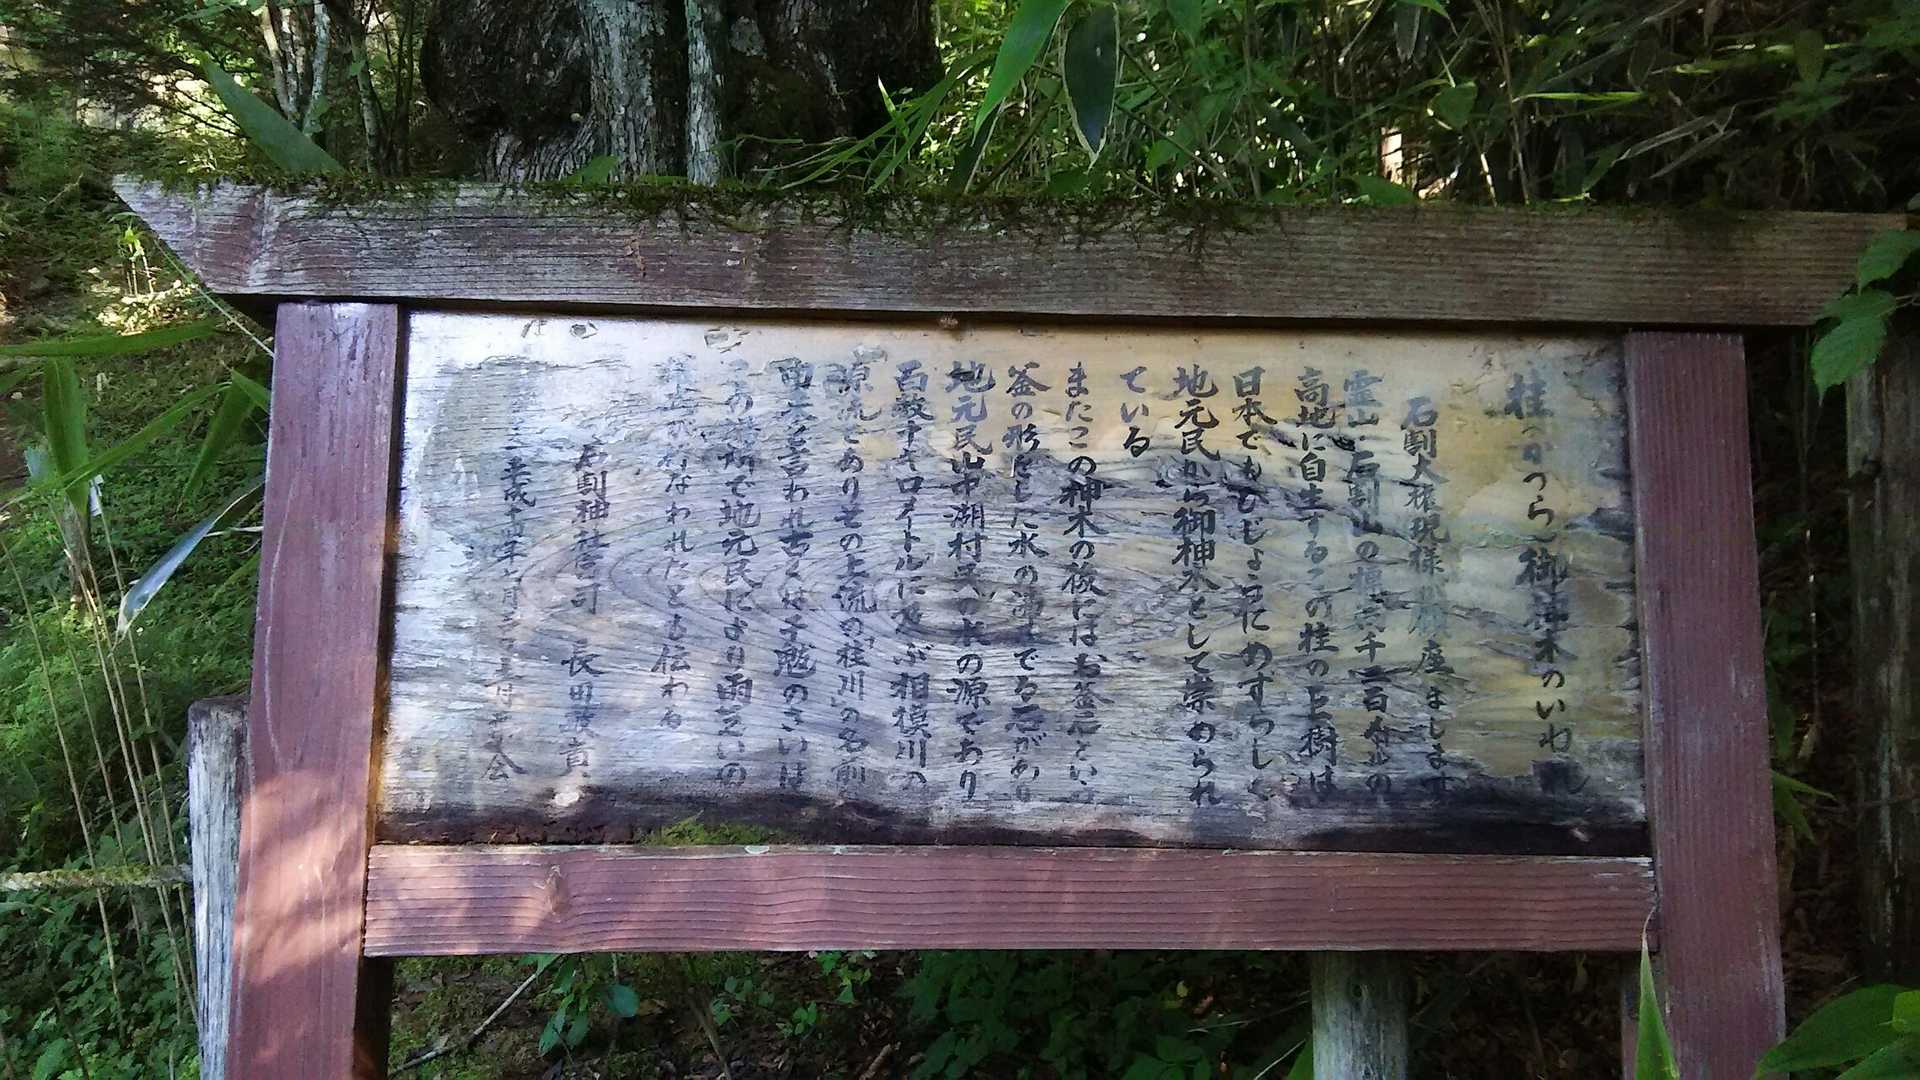 桂(かつら)御神木のいわれ
石割大権現様が鎮座まします
霊山 石割山の標高千二百余りの
高地に自生するこの桂の巨樹は
日本でもひじょうにめずらしく
地元民から御神木として崇められ
ている
またこの神木の後にはお釜元といい
釜の形をした水の湧きでる石があり
地元民山中湖村民の水の源であり
百数十キロメートルに及ぶ相模川の
源流でありその上流の「桂川」の名前
由来と言われ古くは干魃のさいは
この場所で地元民により雨乞いの
行なわれたとも伝わる
石割神社宮司 長田
平成十 年 月